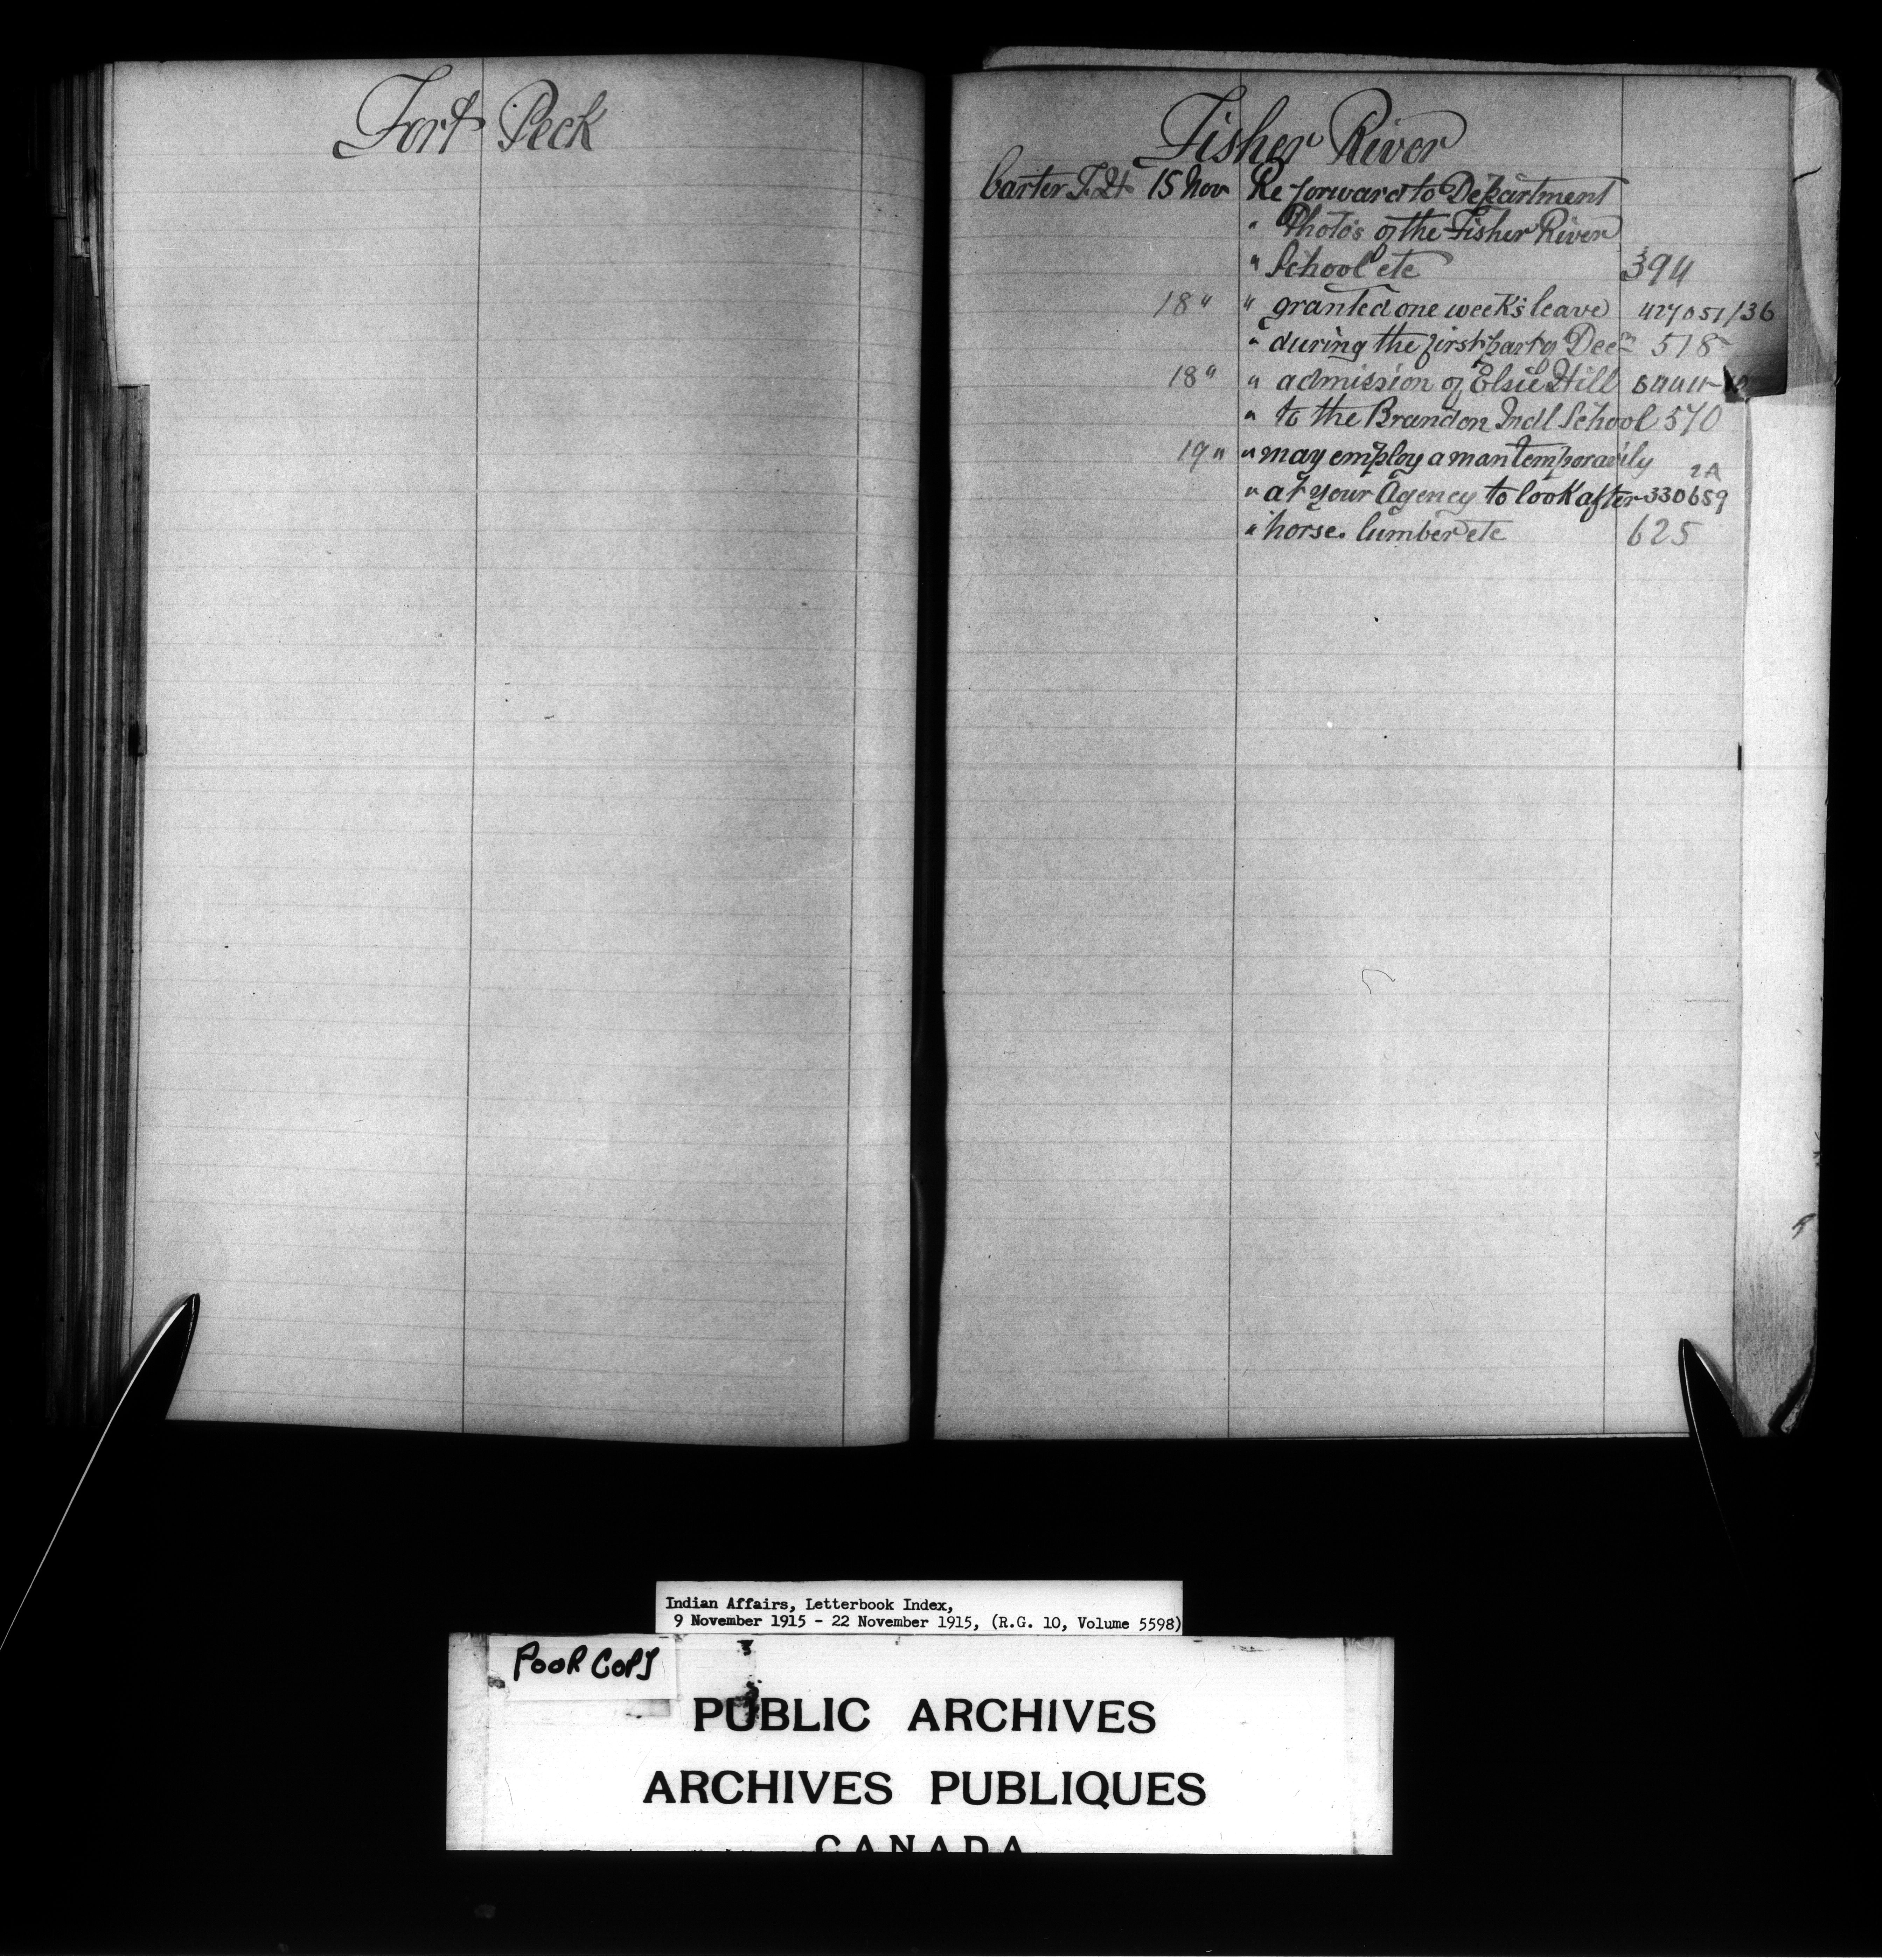 Fort Peck
Fisher River
Carter T.H. 15 Nov Re forward to Department
" Photo's of the Fisher River
" School etc 394
18 " " granted one week's leave 427051/36
" during the first part of Decm 518
18 " " admission of Elsie Hill
" to the Brandon Indl School 570
19 " " may employ a man temporarily 2A
" at your Agency to look after 330659
" horse. lumber etc 625
Indian Affairs, Letterbook Index,
9 November 1915 - 22 November 1915, (R.G. 10, Volume 5598)
POOR COPY
PUBLIC ARCHIVES
ARCHIVES PUBLIQUES
CANADA